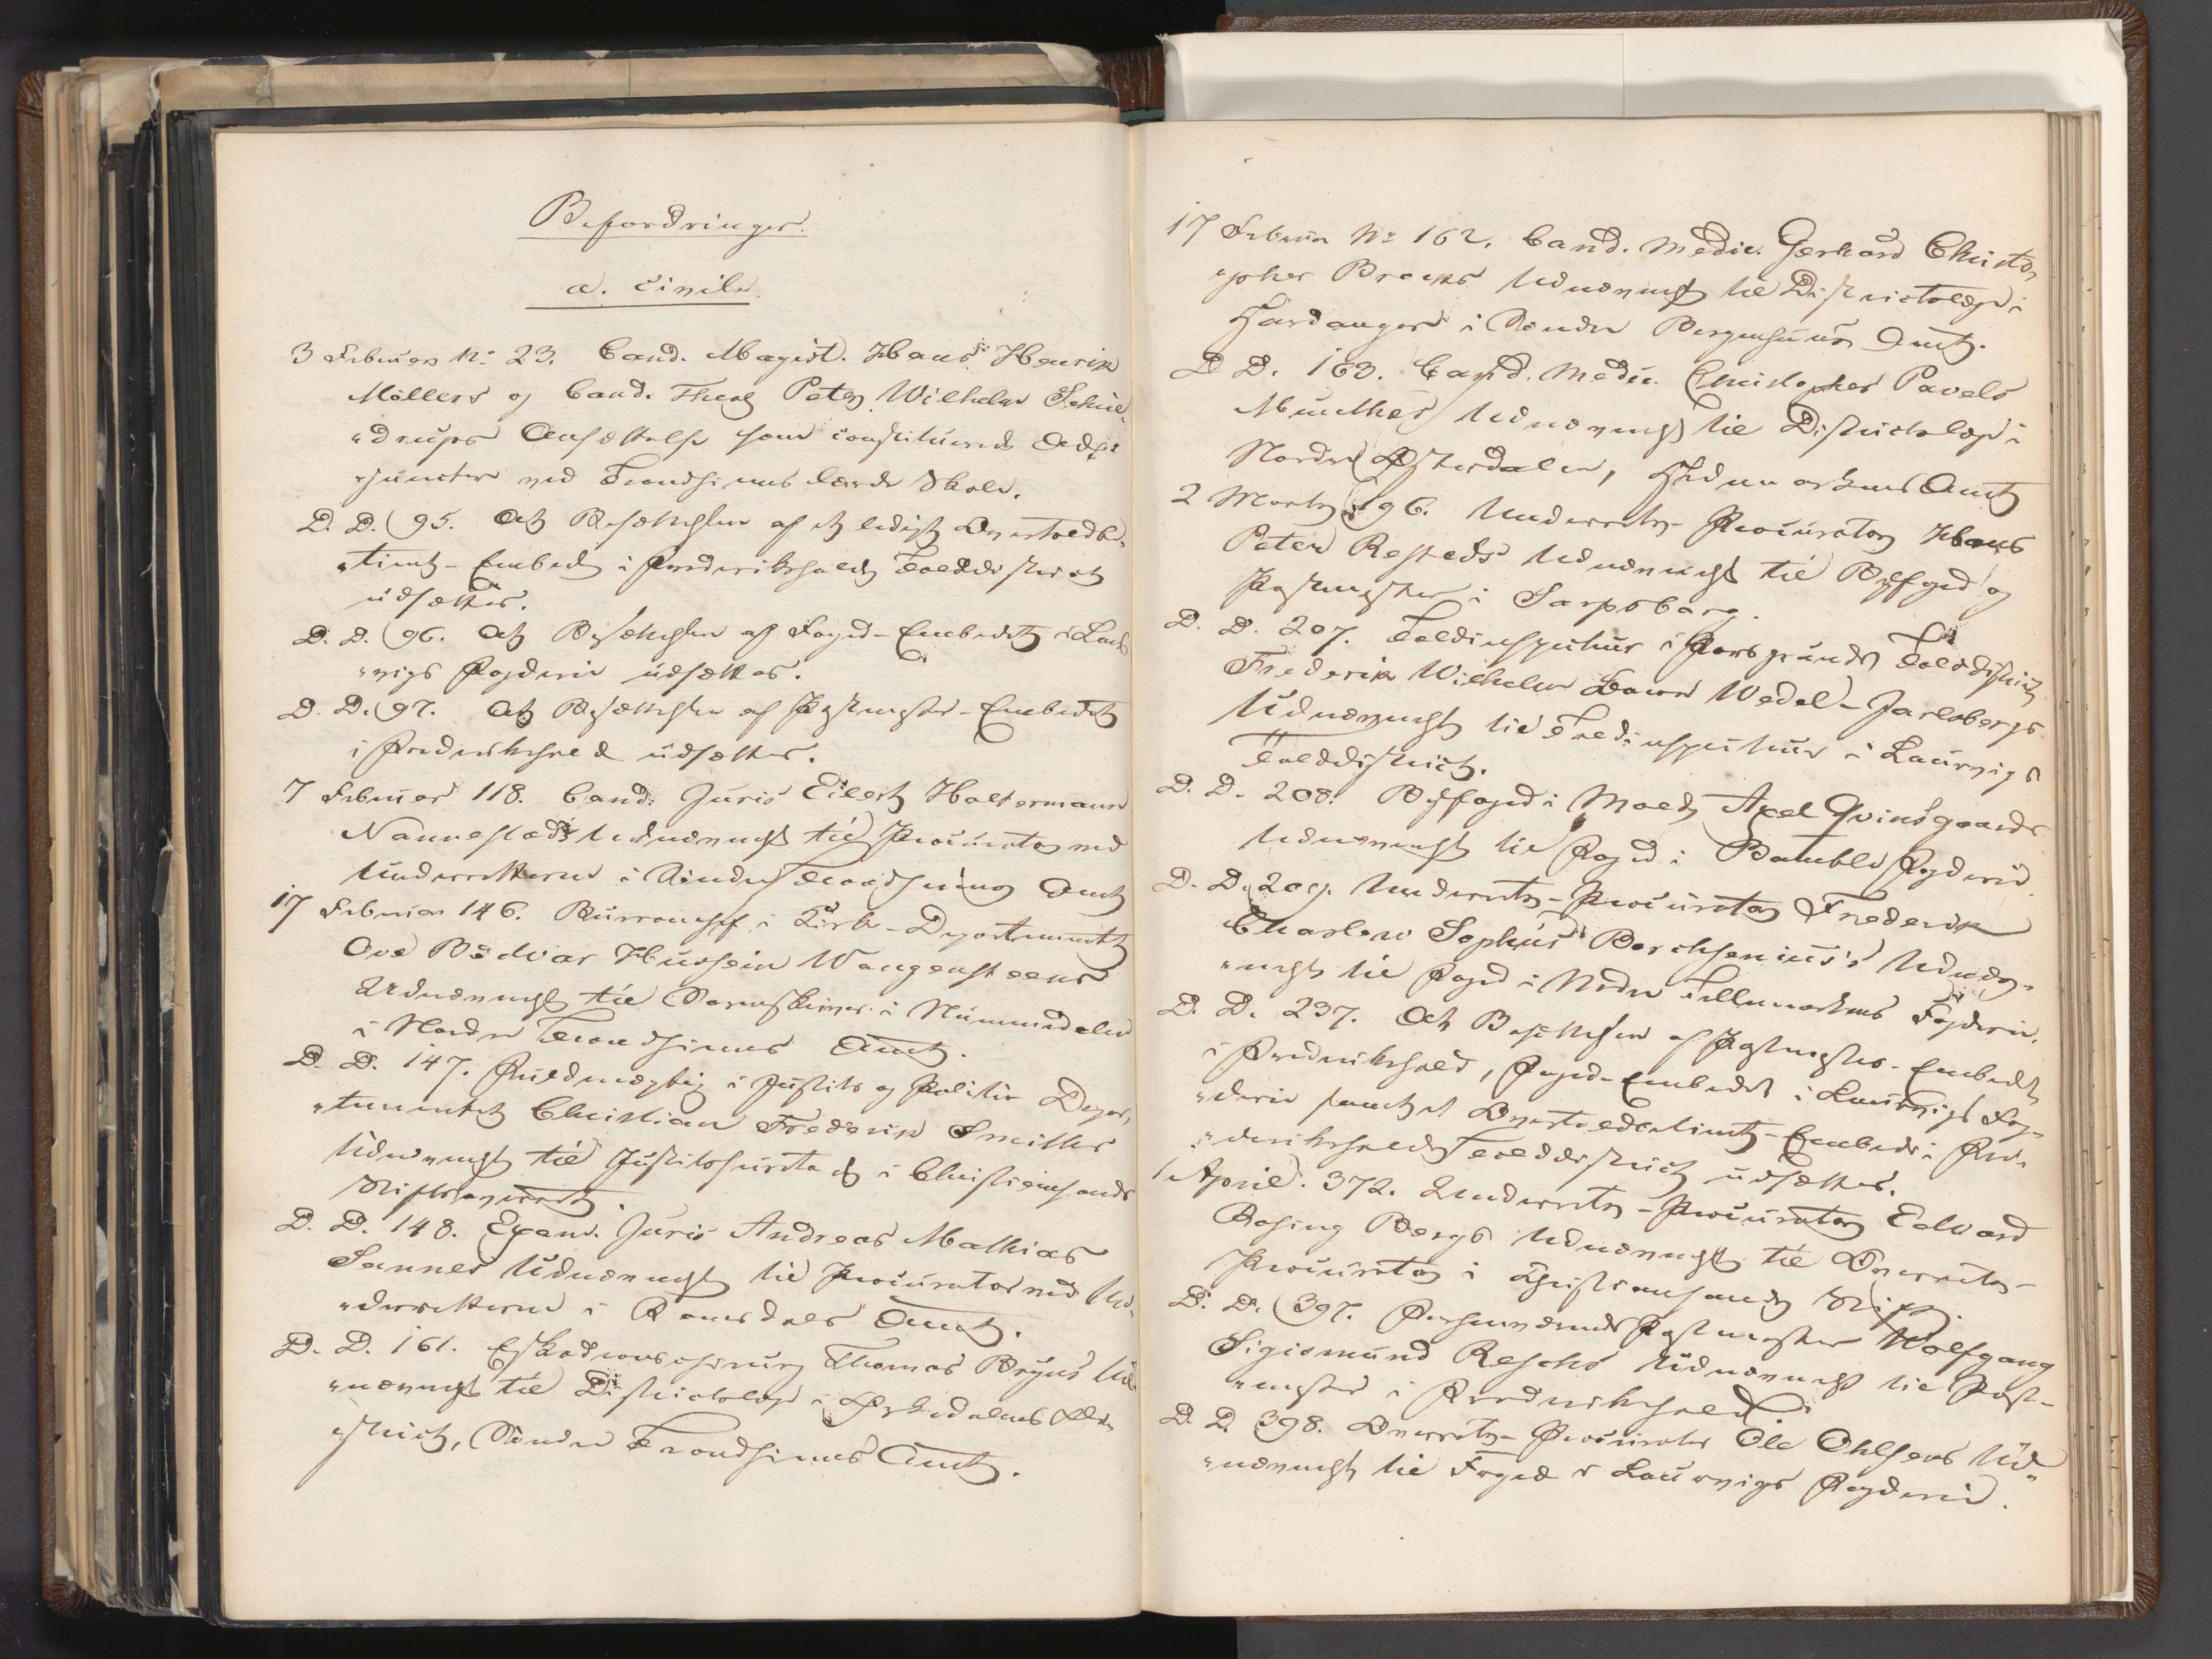 Befordringer.
a. Civile.
3 Februar No 23. Cand. Magist. Hans Henrik
Möllers og Cand. Theol Peter Wilhelm Schie-
"drups Ansættelse som constituerede Ad-
"juncter ved Trondhjems lærde Skole.
D. D. 95. At Besættelsen af et ledigt Overtoldbe-
"tjent-Embede i Frederikshalds Tolddistrict
udsættes.
D. D. 96. At Besættelsen af Foged-Embedet i Laur-
"vigs Fogderie udsættes.
D. D. 97. At Besættelsen af Postmester-Embedet
i Frederikshald udsættes.
7 Februar 118. Cand. Juris Eilert Holtermann
Nannestads Udnævnelse til Procurator ved
Underretterne i Søndre Trondhjems Amt
17 Februar 146. Bureauchef i Kirke-Departementet
Ove Bödvar Hussein Wangensteens
Udnævnelse til Sorenskriver i Nummedalen
i Nordre Trondhjems Amt.
D. D. 147. Fuldmægtig i Justits og Politie Depar-
"tementet Christian Frederik Smiths
Udnævnelse til Justitssecretair i Christiansands
Stiftsoverret.
D. D. 148. Exam. Juris Andreas Mathias
Sannes Udnævnelse til Procurator ved Un-
"derretterne i Romsdals Amt.
D. D. 161. Eskadronschirurg Thomas Bryns Ud-
"nævnelse til Districtslæge i Orkedalens Di-
"strict, Søndre Trondhjems Amt.
17 Februar No 162. Cand. Medic. Gerhard Christo-
"pher Brocks Udnævnelse til Districtslæge i
Hardanger i Søndre Bergenhuus Amt.
D. D. 163. Cand. Medic. Christopher Pavels
Munthes Udnævnelse til Districtslæge i
Nordre Østerdalen, Hedemarkens Amt
2 Marts 196. Underrets-Procurator Hans
Peter Rosteds Udnævnelse til Byfoged og
Postmester i Sarpsborg.
D. D. 207. Toldinspecteur i Porsgrunds Tolddistrict
Frederik Wilhelm Baron Wedel-Jarlsbergs
Udnævnelse til Toldinspecteur i Laurvigs
Tolddistrict.
D. D. 208. Byfoged i Molde Axel Qvinsgaards
Udnævnelse til Foged i Bamble Fogderie
D. D. 209. Underrets-Procurator Frederik
Charlow Sophus Borchsenius's Udnæv-
"nelse til Foged i Nedre Tellemarkens Fogderie.
D. D. 237. At Besættelsen af Postmester-Embedet
i Frederikshald, Foged-Embedet i Laurvigs Fog-
"derie samt et Overtoldbetjent-Embede i Fre-
"derikshalds Tolddistrict udsættes.
1 April. 372. Underrets-Procurator Edvard
Rosing Bergs Udnævnelse til Overrets-
Procurator i Christiansands Stift.
D. D. 397. Forhenværende Postmester Wolfgang
Sigismund Reschs Udnævnelse til Post-
"mester i Frederikshald.
D. D. 398. Overrets-Procurator Ole Ohlsens Ud-
"nævnelse til Foged i Laurvigs Fogderie.